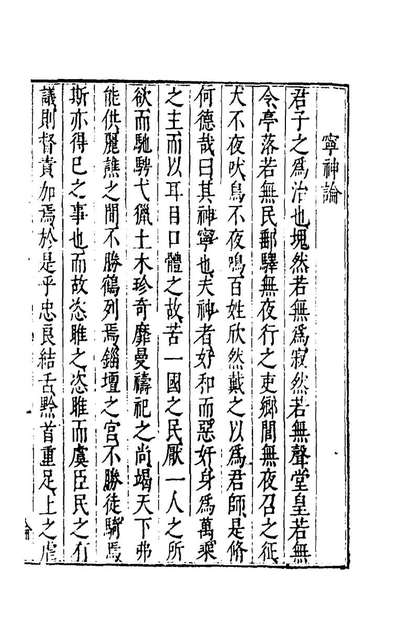 寧神論
君子之為治也塊然若無為寂然若無聲堂皇若無
令亭落若無民郵驛無夜行之吏鄉閭無夜召之征
犬不夜吠鳥不夜鳴百姓欣然戴之以為君師是脩
何德哉曰其神寧也夫神者好和而惡奸身為萬乘
之主而以耳目口體之故苦一國之民厭一人之所
欲而馳騁弋獵土木珍奇靡曼禱祀之尚竭天下弗
能供麗譙之間不勝鶴列焉錙壇之宮不勝徒騎焉
斯亦得已之事也而故恣睢之恣睢而虞臣民之有
議則督責加焉於是乎忠良結舌黔首重足上之虐
論